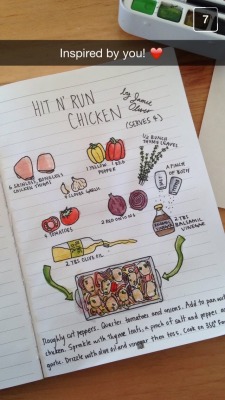 7
Inspired by you! ❤️
HIT N' RUN
CHICKEN
by Jamie
Oliver
(SERVES 4)
6 SKINLESS, BONELESS
CHICKEN THIGHS
1 YELLOW 1 RED
PEPPER
1/2 BUNCH
THYME LEAVES
4 CLOVES GARLIC
A PINCH
OF BOTH
4 TOMATOES
2 RED ONIONS
2 TBS
BALSAMIC
VINEGAR
2 TBS OLIVE OIL
Roughly cut peppers. Quarter tomatoes and onions. Add to pan with
chicken. Sprinkle with thyme leaves, a pinch of salt and pepper and
garlic. Drizzle with olive oil and vinegar then toss. Cook on 350° for